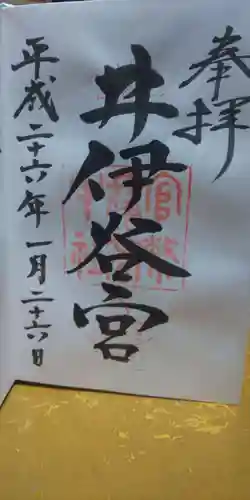 奉拝
井伊谷宮
平成二十六年一月二十六日